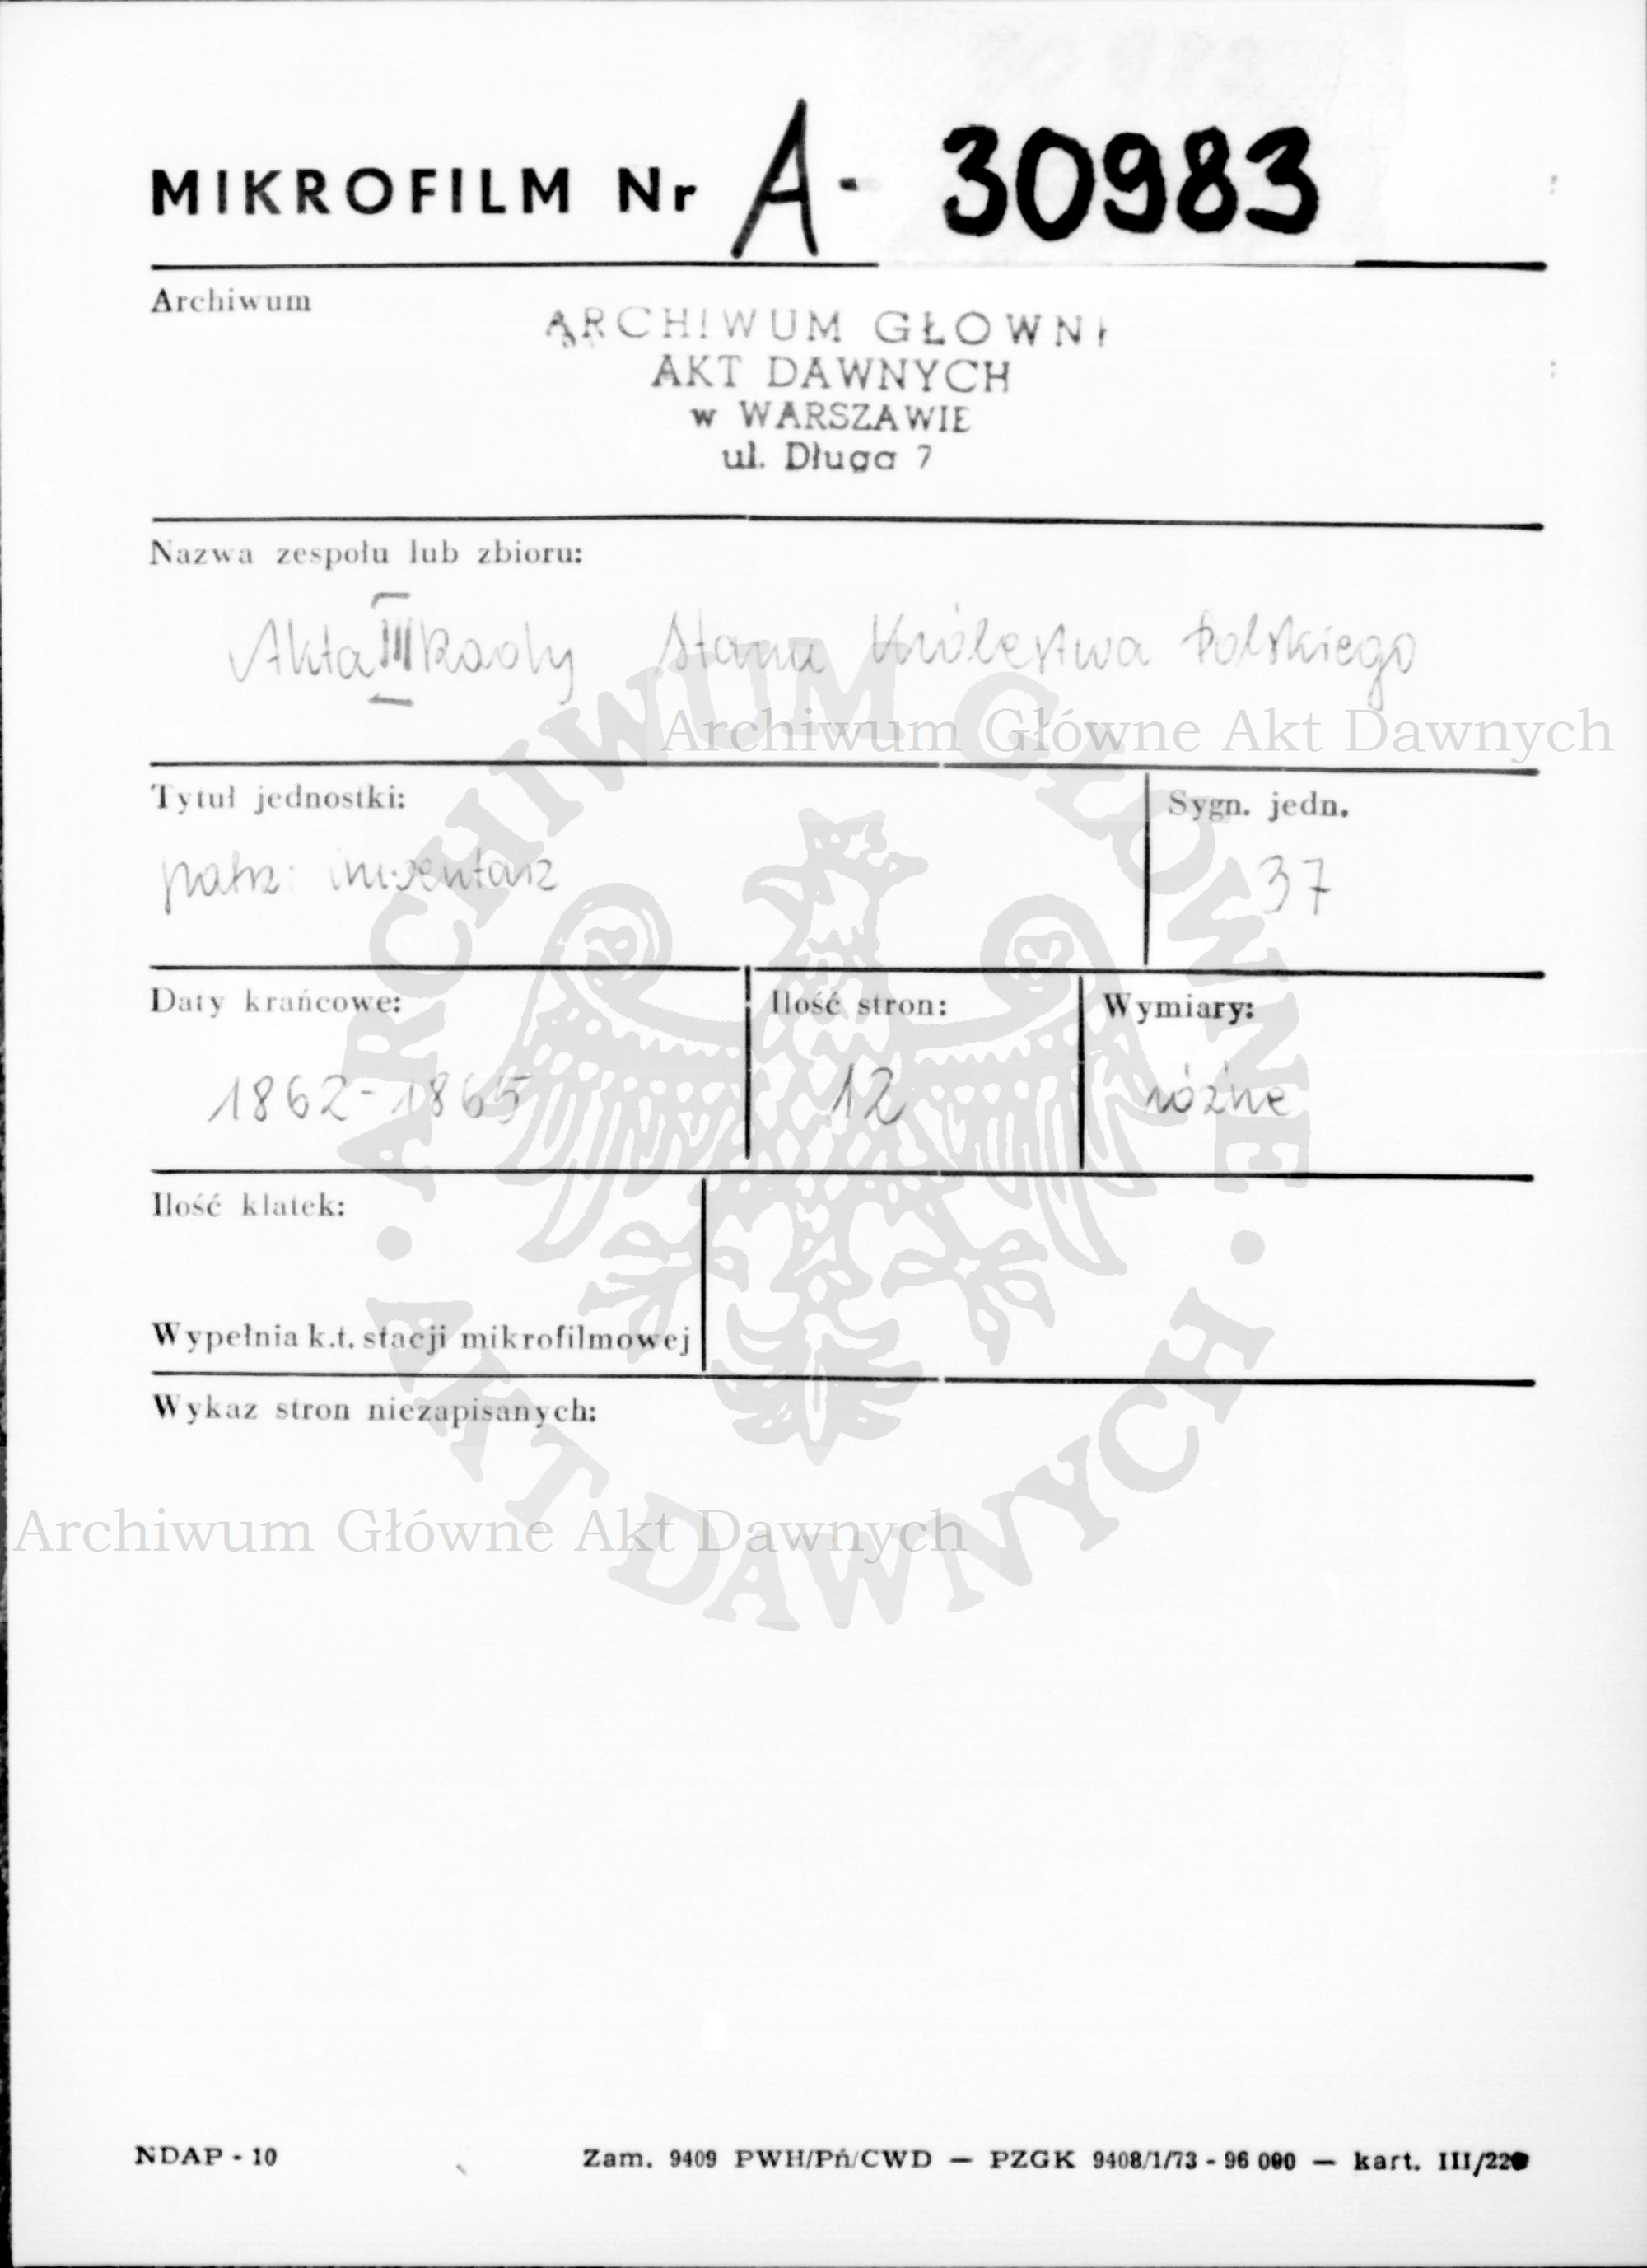 MIKROFILM Nr A- 30983
Archiwum
ARCHIWUM GŁOWN
AKT DAWNYCH
w WARSZAWIE
ul. Długa 7
Nazwa zespołu lub zbioru:
Akta III Rady Stanu Królestwa Polskiego
Archiwum Główne Akt Dawnych
Tytuł jednostki:
Sygn. jedn.
patrz inwentarz
37
Daty krańcowe:
Ilość stron:
Wymiary:
1862-1865
12
różne
Ilość klatek:
Wypełnia k.t. stacji mikrofilmowej
Wykaz stron niezapisanych:
Archiwum Główne Akt Dawnych
ARCHIWUM GŁÓWNE
AKT DAWNYCH
NDAP - 10
Zam. 9409 PWH/Pń/CWD — PZGK 9408/1/73 - 96 000 — kart. III/220